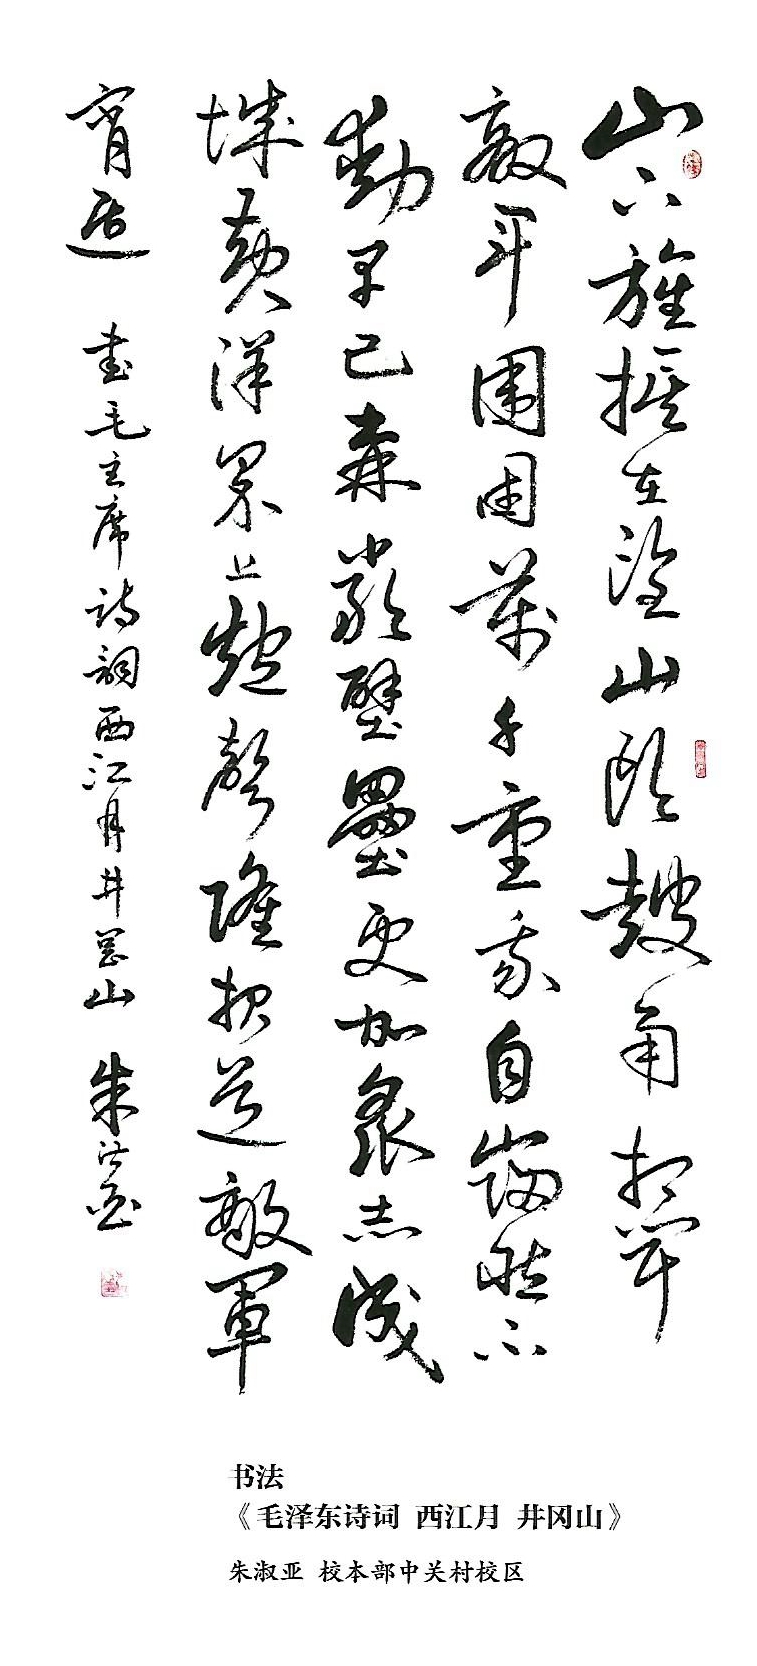 山下旌旗在望山頭鼓角相聞
敵軍圍困萬千重我自巋然不
動早已森嚴壁壘更加衆志成
城黄洋界上炮聲隆报道敵軍
宵遁 書毛主席诗詞西江月井岡山 朱淑亚
书法
《毛泽东诗词 西江月 井冈山》
朱淑亚 校本部中关村校区